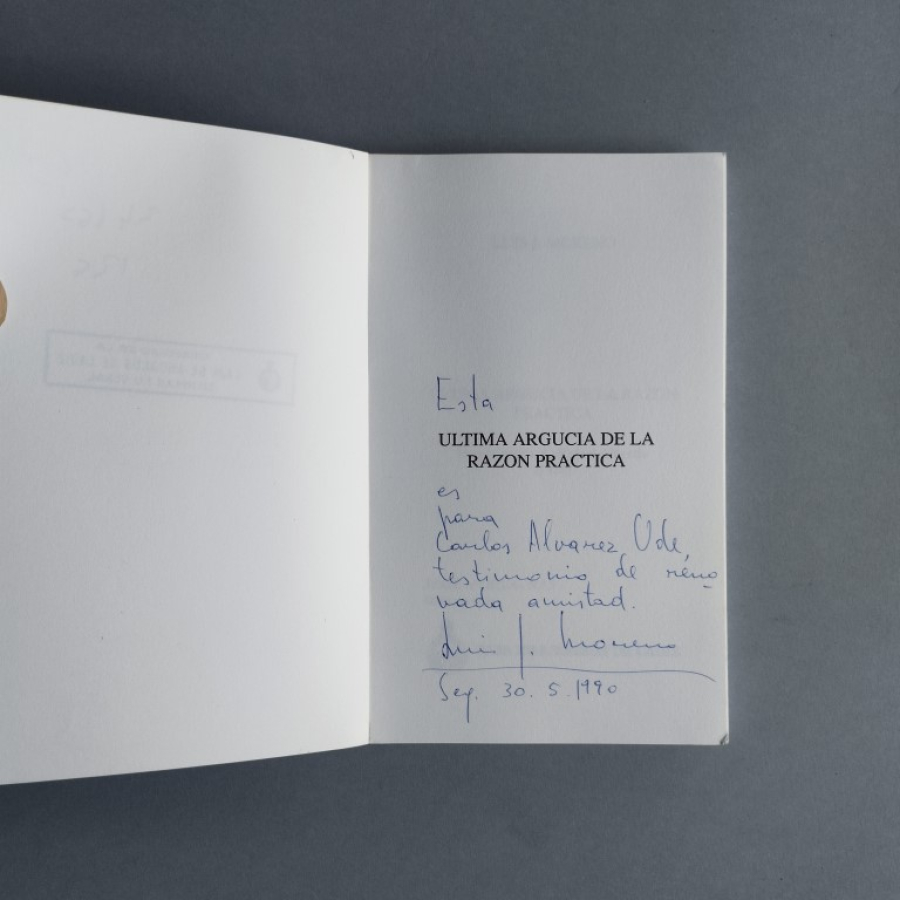 Esta
ULTIMA ARGUCIA DE LA
RAZON PRACTICA
es
para
Carlos Alvarez Ude,
testimonio de reno-
vada amistad.
Luis J. Moreno
Seg. 30. 5. 1990